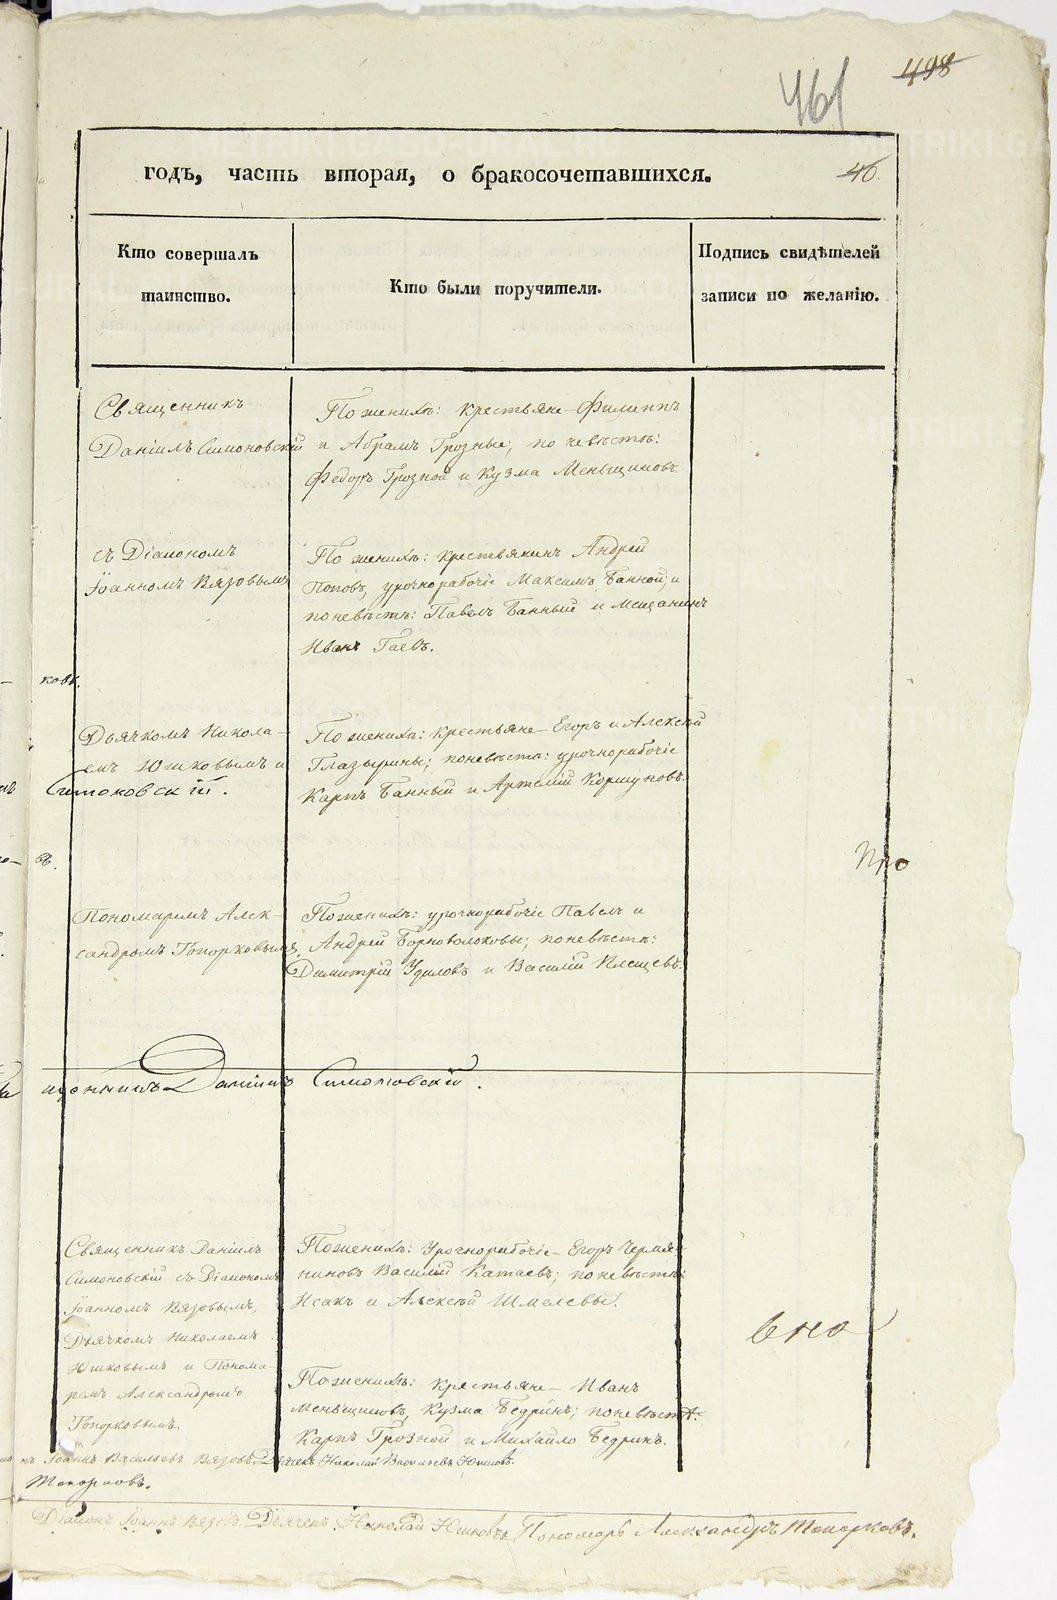 461
498
годъ, часть вторая, о бракосочетавшихся.
46.
Кто совершалъ
таинство.
Кто были поручители.
Подпись свидѣтелей
записи по желанію.
Священникъ
Даніилъ Симоновскій
По женихѣ: крестьяне Филиппъ
и Абрамъ Грозные; по невѣстѣ:
Федоръ Грозной и Кузма Меньщиковъ.
съ Діакономъ
Іоанномъ Вязовымъ
По женихѣ: крестьянинъ Андрей
Поповъ, урочнорабочіе Максимъ Банной, и
по невѣстѣ: Павелъ Банный и мещанинъ
Иванъ Гаевъ.
ковъ.
Дьячкомъ Никола-
емъ Юшковымъ и
По женихѣ: крестьяне Егоръ и Алексѣй
Глазырины; по невѣстѣ: урочнорабочіе
Карпъ Банный и Артемій Коршуновъ.
Симоновскій.
въ.
Про
Пономаремъ Алек-
сандромъ Топорковымъ.
По женихѣ: урочнорабочіе Павелъ и
Андрей Борноволоковы; по невѣстѣ:
Димитрій Удиловъ и Василій Клещевъ.
щенникъ Даніилъ Симоновскій.
Священникъ Даніилъ
Симоновскій съ Діакономъ
Іоанномъ Вязовымъ,
Дьячкомъ Николаемъ
Юшковымъ и Понома
ремъ Александромъ
Топорковымъ.
По женихѣ: Урочнорабочіе Егоръ Черемя-
Василій Катаевъ; по невѣстѣ:
Исакъ и Алексѣй Шмелевы.
вно
По женихѣ: крестьяне Иванъ
Меньщиковъ, Кузма Бедринъ; по невѣстѣ:
Карпъ Грозной и Михайло Бедринъ.
Іоаннъ Васильевъ Вязовъ. Дьячекъ Николай Васильевъ Юшковъ.
Топорковъ.
Діаконъ Іоаннъ Вязовъ. Дьячекъ Николай Юшковъ. Пономарь Александръ Топорковъ.